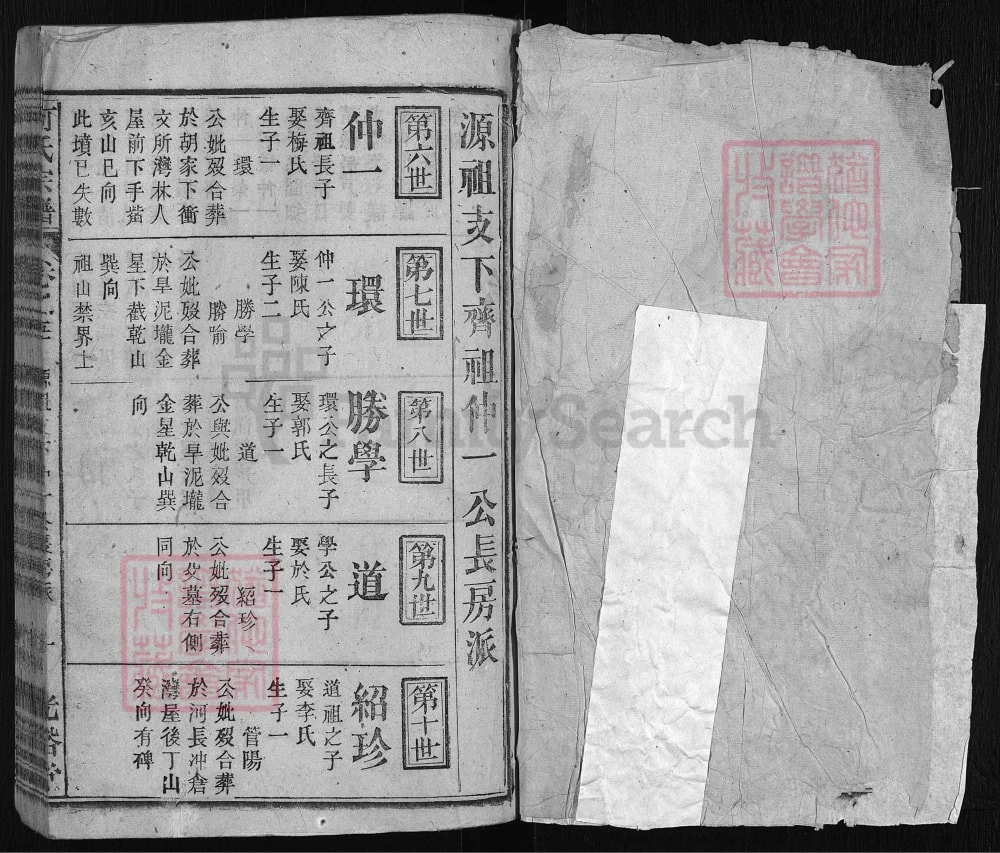 源祖支下齊祖仲一公長房派
第六世
仲一
齊祖長子
娶梅氏
生子一
環
公妣歿合葬
於胡家下衝
文所灣林人
屋前下手
亥山巳向
此墳已失數
第七世
環
仲一公之子
娶陳氏
生子二
勝學
勝喻
公妣歿合葬
於旱泥壠金
星下截乾山
巽向
祖山禁界土
第八世
勝學
環公之長子
娶郭氏
生子一
道
公與妣歿合
葬於旱泥壠
金星乾山巽
向
第九世
道
學公之子
娶於氏
生子一
紹珍
公妣歿合葬
於父墓右側
同向
第十世
紹珍
道祖之子
娶李氏
生子一
管陽
公妣歿合葬
於河長冲倉
灣屋後丁山
癸向有碑
FamilySearch